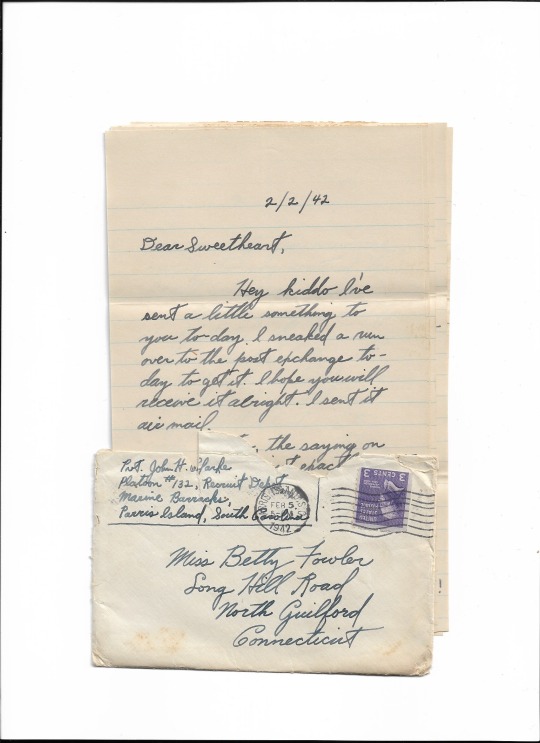 2/2/42
Dear Sweetheart,
Hey kiddo I've
sent a little something to
you to-day. I sneaked a run
over to the post exchange to-
day to get it. I hope you will
receive it alright. I sent it
air mail.
the saying on
Pvt. John H. Clarke
Platoon #132, Recruit Dept
Marine Barracks,
Parris Island, South Carolina
FEB 5
1942
3 CENTS 3
UNITED
STATES
POSTAGE
Miss Betty Fowler
Long Hill Road
North Guilford
Connecticut